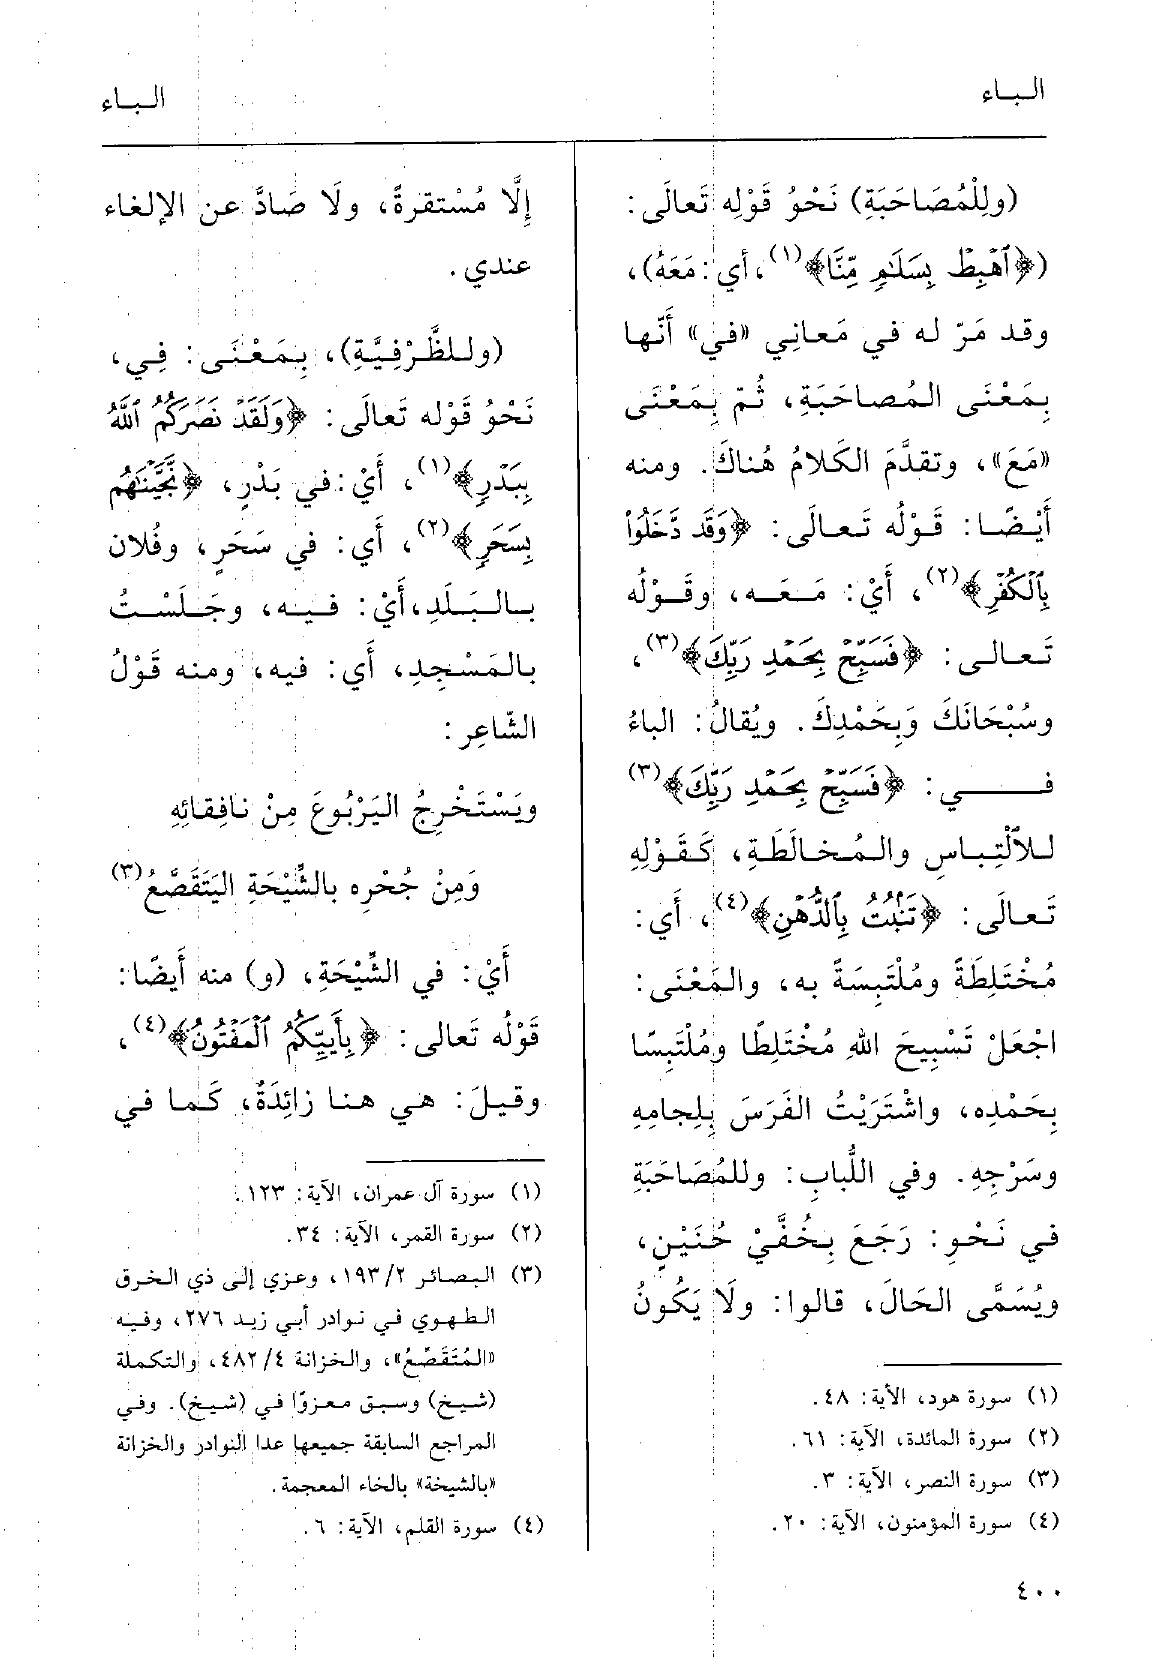 الباء
الباء
(ولِلْمُصَاحَبَةِ) نَحْوُ قَوْلِه تَعالَى:
(﴿ٱهْبِطْ بِسَلَٰمٍ مِّنَّا﴾(١)، أي: مَعَهُ)،
وقد مَرّ له في مَعانِي «في» أَنّها
بِمَعْنَى المُصاحَبَةِ، ثُمّ بِمَعْنَى
«مَعَ»، وتقدَّمَ الكَلامُ هُناكَ. ومنه
أَيْضًا: قَوْلُه تَعالَى: ﴿وَقَد دَّخَلُوا۟
بِٱلْكُفْرِ﴾(٢)، أَيْ: مَعَه، وقَوْلُه
تَعالى: ﴿فَسَبِّحْ بِحَمْدِ رَبِّكَ﴾(٣)،
وسُبْحَانَكَ وَبِحَمْدِكَ. ويُقالُ: الباءُ
في: ﴿فَسَبِّحْ بِحَمْدِ رَبِّكَ﴾(٣)
للاْلْتِباسِ والمُخالَطَةِ، كَقَوْلِهِ
تَعالَى: ﴿تَنۢبُتُ بِٱلدُّهْنِ﴾(٤)، أَي:
مُخْتَلِطَةً ومُلْتَبِسَةً به، والمَعْنَى:
اجْعَلْ تَسْبِيحَ اللهِ مُخْتَلِطًا ومُلْتَبِسًا
بِحَمْدِه، واشْتَرَيْتُ الفَرَسَ بِلِجامِهِ
وسَرْجِهِ. وفي اللُّبابِ: وللمُصَاحَبَةِ
في نَحْوِ: رَجَعَ بِخُفَّيْ حُنَيْنٍ،
ويُسَمَّى الحَالَ، قالوا: ولَا يَكُونُ
(١) سورة هود، الآية: ٤٨.
(٢) سورة المائدة، الآية: ٦١.
(٣) سورة النصر، الآية: ٣.
(٤) سورة المؤمنون، الآية: ٢٠.
إِلَّا مُسْتقرةً، ولَا صَادَّ عن الإلغاء
عندي.
(وللظَّرْفِيَّةِ)، بِمَعْنَى: فِي،
نَحْوُ قَوْلِه تَعالَى: ﴿وَلَقَدْ نَصَرَكُمُ ٱللَّهُ
بِبَدْرٍ﴾(١)، أَيْ: في بَدْرٍ، ﴿نَّجَّيْنَٰهُم
بِسَحَرٍ﴾(٢)، أَي: في سَحَرٍ، وفُلان
بالبَلَدِ، أَيْ: فيه، وجَلَسْتُ
بالمَسْجِدِ، أَي: فيه، ومنه قَوْلُ
الشّاعِر:
ويَسْتَخْرِجُ اليَرْبُوعَ مِنْ نافِقائِهِ
وَمِنْ جُحْرِه بالشِّيْحَةِ اليَتَقَصَّعُ(٣)
أَيْ: في الشِّيْحَةِ، (و) منه أَيضًا:
قَوْلُه تَعالى: ﴿بِأَييِّكُمُ ٱلْمَفْتُونُ﴾(٤)،
وقيلَ: هي هنا زائِدَةٌ، كَما في
(١) سورة آل عمران، الآية: ١٢٣.
(٢) سورة القمر، الآية: ٣٤.
(٣) البصائر ١٩٣/٢، وعزي إلى ذي الخرق
الطهوي في نوادر أبي زيد ٢٧٦، وفيه
«المُتَقَصِّعُ»، والخزانة ٤٨٢/٤، والتكملة
(شيخ) وسبق معزوًّا في (شيخ). وفي
المراجع السابقة جميعها عدا النوادر والخزانة
«بالشيخة» بالخاء المعجمة.
(٤) سورة القلم، الآية: ٦.
٤٠٠